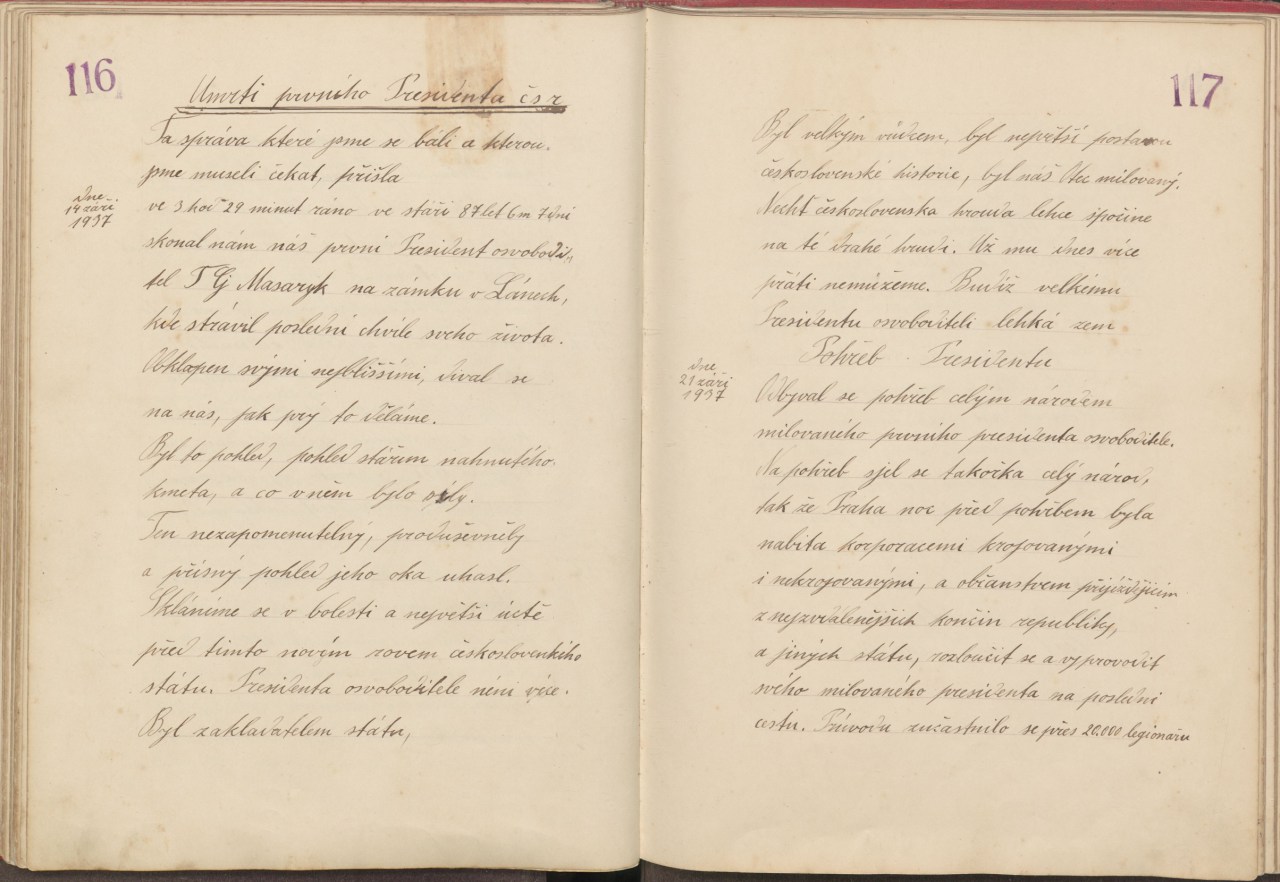 116
Umrti prvního Presidenta čsr
Ta správa které jsme se báli a kterou.
jsme museli čekat, přišla
dne
14 září
1937
ve 3 hod 29 minut ráno ve stáří 87 let 6 m 7 dní
skonal nám náš první President osvobodi„
tel T G Masaryk na zámku v Lánech,
kde strávil poslední chvíle sveho života.
Obklapen svými nejbliššími, díval se
na nás, jak prý to děláme.
Byl to pohled, pohled stářím nahnutého.
kmeta, a co v něm bylo síly.
Ten nezapomenutelný, produševnělý
a přísný pohled jeho oka uhasl.
Skláníme se v bolesti a největší úctě
před timto novým rovem československého
státu. Presidenta osvoboditele néni více.
Byl zakladatelem státu,
117
Byl velkým vůdcem, byl největší postavou
československé historie, byl náš Otec milovaný.
Nechť československa hrouda lehce spočine
na té drahé hrudi. Už mu dnes více
přáti nemůžeme. Budiž velkému
Presidentu osvoboditeli lehká zem
Pohřeb Presidentu
dne
21 září
1937
Odbyval se pohřeb celým národem
milovaného prvního presidenta osvoboditele.
Na pohřeb sjel se takořka celý národ,
tak že Praha noc před pohřbem byla
nabita korporacemi krojovanými
i nekrojovanými, a občanstvem přijíždějicím
z nejzvdálenějšich končin republiky,
a jiných státu, rozloučit se a vyprovodit
svého milovaného presidenta na poslední
cestu. Průvodu zučastnilo se přes 20.000 legionařu